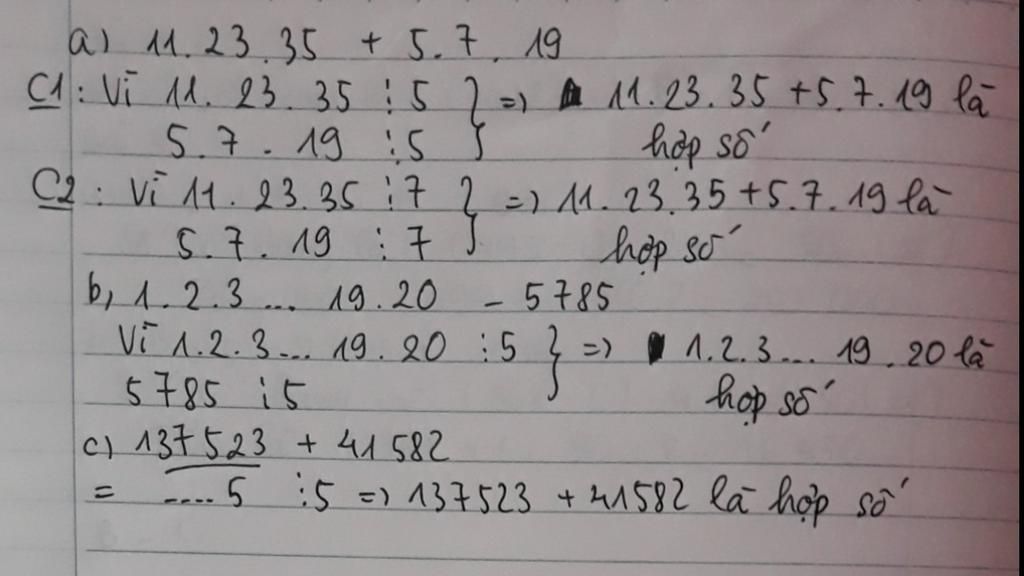 a) 11.23.35 + 5.7.19
C1: Vì 11.23.35 ⋮5 } => 11.23.35 + 5.7.19 là
5.7.19 ⋮5 hợp số
C2: Vì 11.23.35 ⋮7 } => 11.23.35 + 5.7.19 là
5.7.19 ⋮7 hợp số
b, 1.2.3... 19.20 - 5785
Vì 1.2.3... 19.20 ⋮5 } => 1.2.3... 19.20 là
5785 ⋮5 hợp số
c) 137523 + 41582
= ....5 ⋮5 => 137523 + 41582 là hợp số